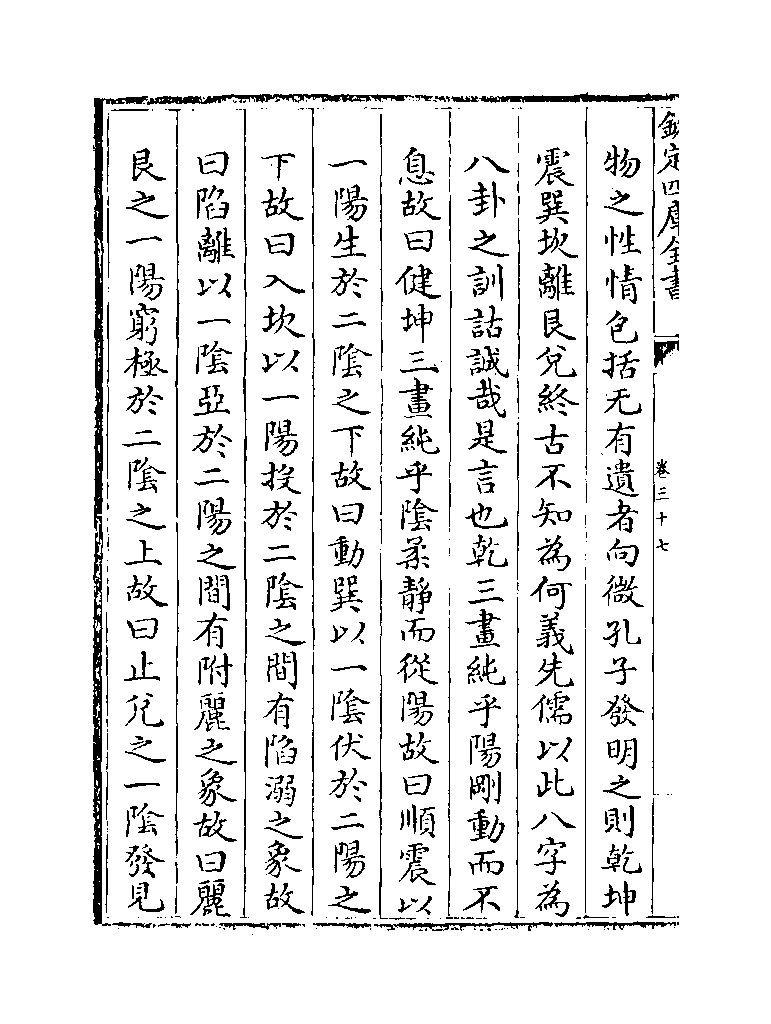 欽定四庫全書
卷三十七
物之性情包括无有遺者向微孔子發明之則乾坤
震巽坎離艮兌終古不知為何義先儒以此八字為
八卦之訓詁誠哉是言也乾三畫純乎陽剛動而不
息故曰健坤三畫純乎陰柔靜而從陽故曰順震以
一陽生於二陰之下故曰動巽以一陰伏於二陽之
下故曰入坎以一陽投於二陰之間有陷溺之象故
曰陷離以一陰亞於二陽之間有附麗之象故曰麗
艮之一陽窮極於二陰之上故曰止兌之一陰發見